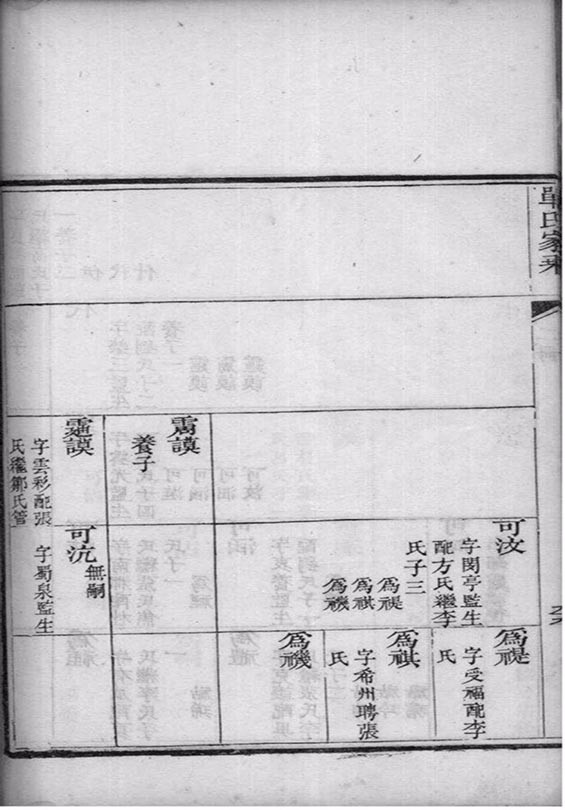 單氏家乘
可汶
字閔亭監生
配方氏繼李
氏子三
爲禔
爲祺
爲禨
爲禔
字受福配李
氏
爲祺
字希州聘張
氏
爲禨
肅謨
養子
霱謨
字雲彩配張
氏繼鄒氏管
可沆
無嗣
字蜀泉監生